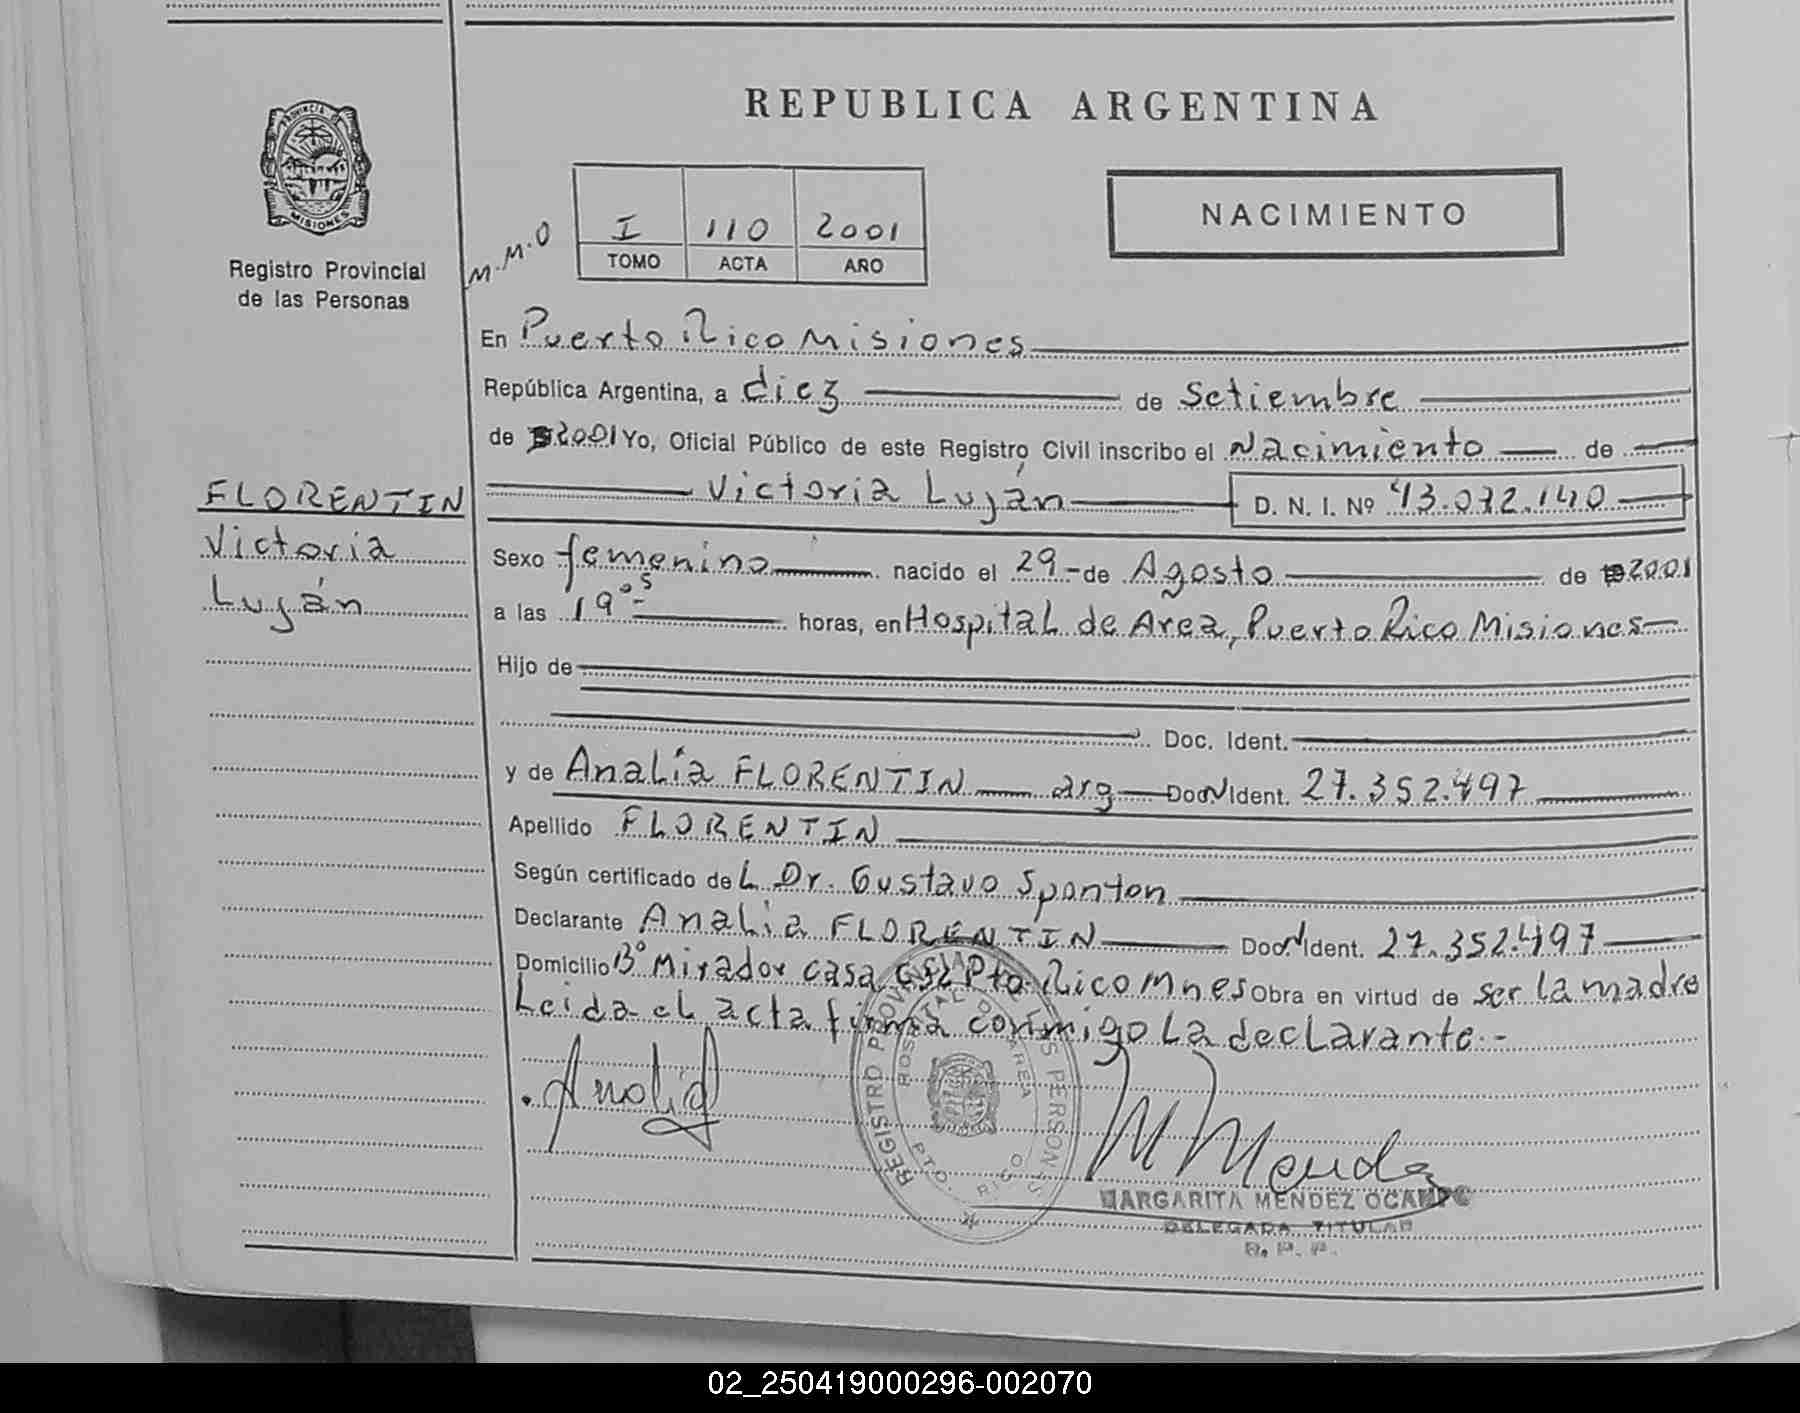 REPUBLICA ARGENTINA
PROVINCIA DE
MISIONES
Registro Provincial
de las Personas
M.M.O
I 110 2001
TOMO ACTA AÑO
NACIMIENTO
En Puerto Rico Misiones
República Argentina, a diez de Setiembre
de 2001 Yo, Oficial Público de este Registro Civil inscribo el Nacimiento de
Victoria Luján D. N. I. Nº 43.072.140
FLORENTIN
Victoria
Luján
Sexo femenino nacido el 29 de Agosto de 2001
a las 19 05 horas, en Hospital de Area, Puerto Rico Misiones
Hijo de
Doc. Ident.
y de Analía FLORENTIN arg Doc N Ident. 27.352.497
Apellido FLORENTIN
Según certificado del Dr. Gustavo Sponton
Declarante Analia FLORENTIN Doc. N Ident. 27.352.497
Domicilio Bº Mirador casa Pto. Rico Mnes Obra en virtud de ser la madre
Leida el acta firma conmigo la declarante.-
Analia
REGISTRO PROVINCIAL DE LAS PERSONAS
HOSPITAL DE AREA
PTO. RICO
M Mendez
MARGARITA MENDEZ OCAMPO
DELEGADA TITULAR
R. P. P.
02_250419000296-002070